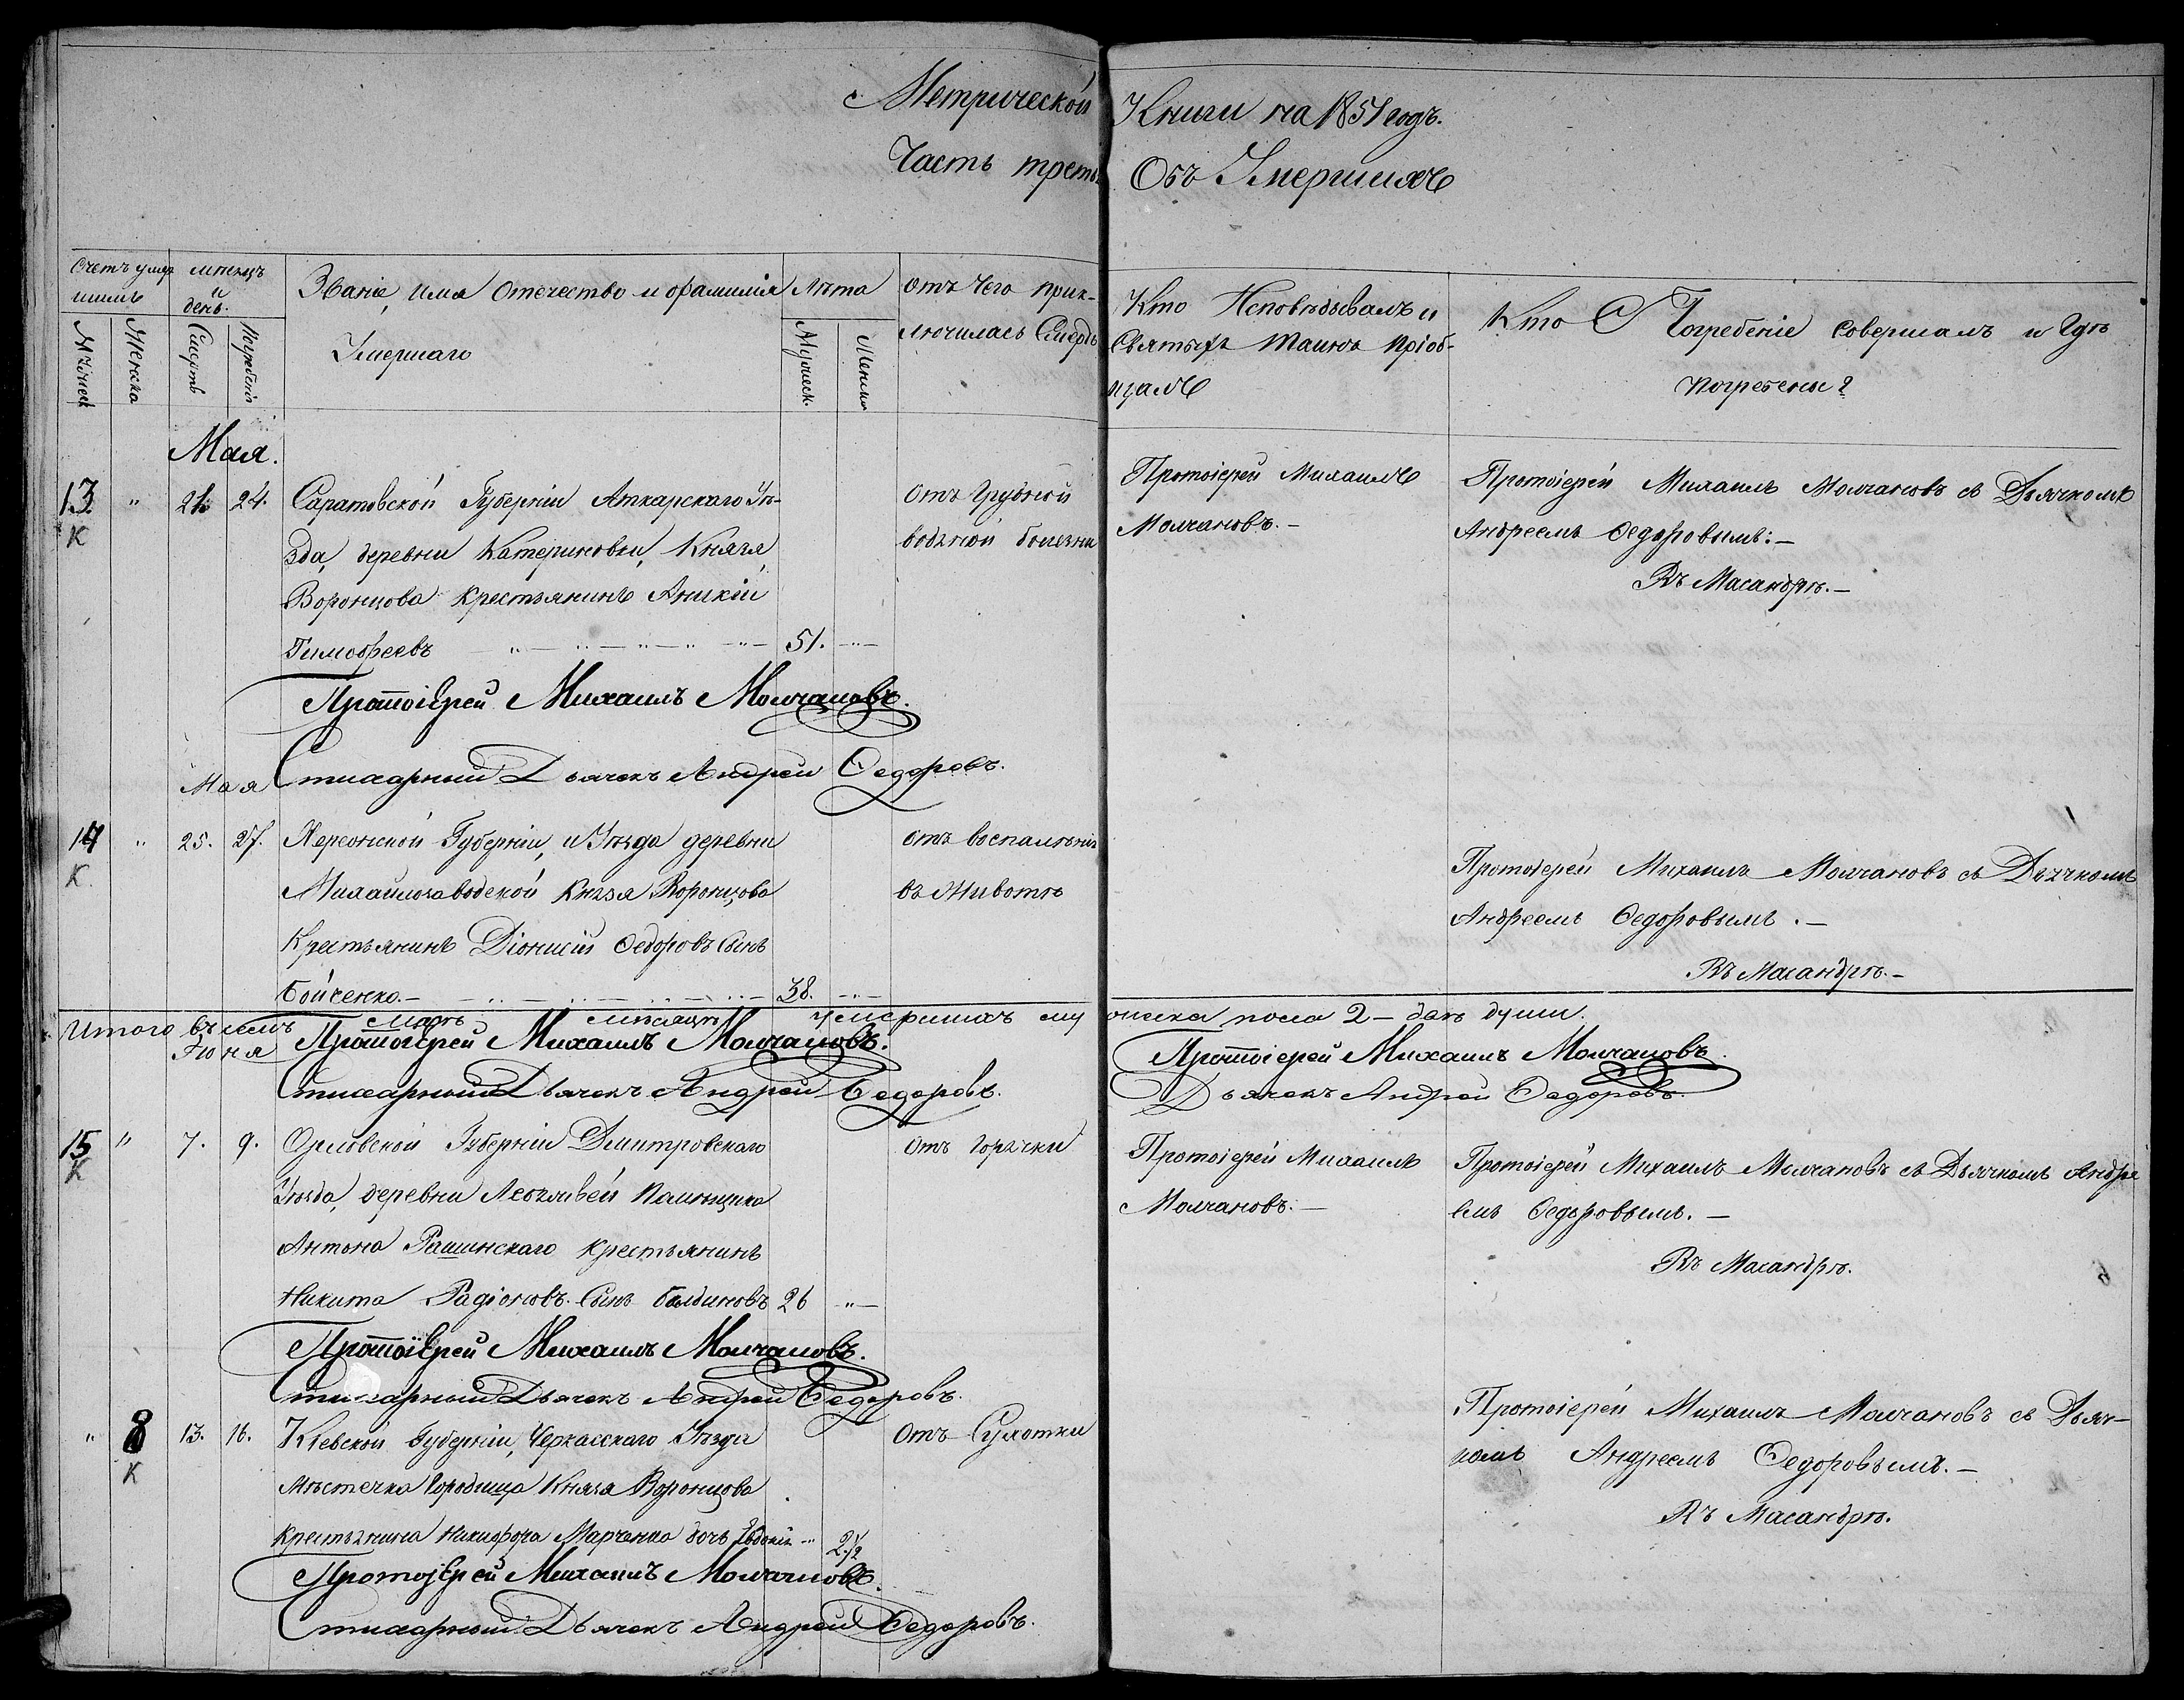 Метрической Книги на 1851 годъ.
Часть треть Объ Умершихъ
Счетъ умер
шимъ
мѣсяцъ
и
день.
Званіе, имя Отечество и фамилія
Умершаго
Лѣта
Отъ Чего прик-
лючилась Смерть
Кто Исповѣдывалъ и
Святыхъ Таинъ Пріоб-
щалъ
Кто Погребеніе Совершалъ и Гдѣ
Погребены?
Мужеск
Женска
Смерть
Погребенія
Мужеск.
Женска
Мая.
13. " 21. 24. Саратовской Губерніи Аткарскаго Уѣ-
К
зда, деревни Катериновки, Князя
Воронцова Крестьянинъ Аникій
Тимофеевъ 51.
Отъ Грудной
водяной болезни
Протоіерей Михаилъ
Молчановъ.
Протоіерей Михаилъ Молчановъ съ Дьячкомъ
Андреемъ Ѳедоровымъ:
Въ Масандрѣ.
Протоіерей Михаилъ Молчановъ.
Стихарный Дьячекъ Андрей Ѳедоровъ.
Мая
14 " 25. 27. Херсонской Губерніи, и Уѣзда деревни
К.
Михайлозаводской Князя Воронцова
Крестьянинъ Діонисій Ѳедоровъ Сынъ
Бойченко. 38.
отъ воспаленія
въ Животѣ
Протоіерей Михаилъ Молчановъ съ Дьячкомъ
Андреемъ Ѳедоровымъ.
Въ Масандрѣ.
Итого въ семъ Маѣ Мѣсяцѣ умершихъ му жеска пола 2 - двѣ души.
Іюня
Протоіерей Михаилъ Молчановъ.
Стихарный Дьячекъ Андрей Ѳедоровъ.
Протоіерей Михаилъ Молчановъ.
Дьячекъ Андрей Ѳедоровъ.
15 " 7. 9. Орловской Губерніи Дмитровскаго
К
Уѣзда, деревни Помещика
Антона Рашинскаго Крестьянинъ
Никита Радіоновъ Сынъ Балдиновъ 26 "
Отъ Горячки
Протоіерей Михаилъ
Молчановъ.
Протоіерей Михаилъ Молчановъ съ Дьячкомъ Андре
емъ Ѳедоровымъ.
Въ Масандрѣ.
Протоіерей Михаилъ Молчановъ.
Стихарный Дьячекъ Андрей Ѳедоровъ.
" 8 13. 16. Кіевской Губерніи, Черкасскаго Уѣзда
К
Мѣстечка Городища Князя Воронцова
Крестьянина Никифора Марченка дочь Евдокія 2½
Отъ Сухотки
Протоіерей Михаилъ Молчановъ съ Дьяч-
комъ Андреемъ Ѳедоровымъ.
Въ Масандрѣ.
Протоіерей Михаилъ Молчановъ.
Стихарный Дьячекъ Андрей Ѳедоровъ.